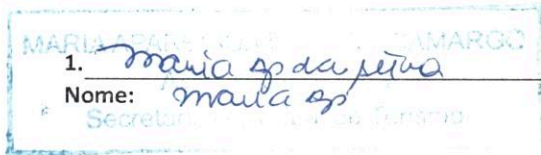 MARIA APAR CAMARGO
1. Maria ap da silva
Nome: Maria ap
Secretar de Turismo